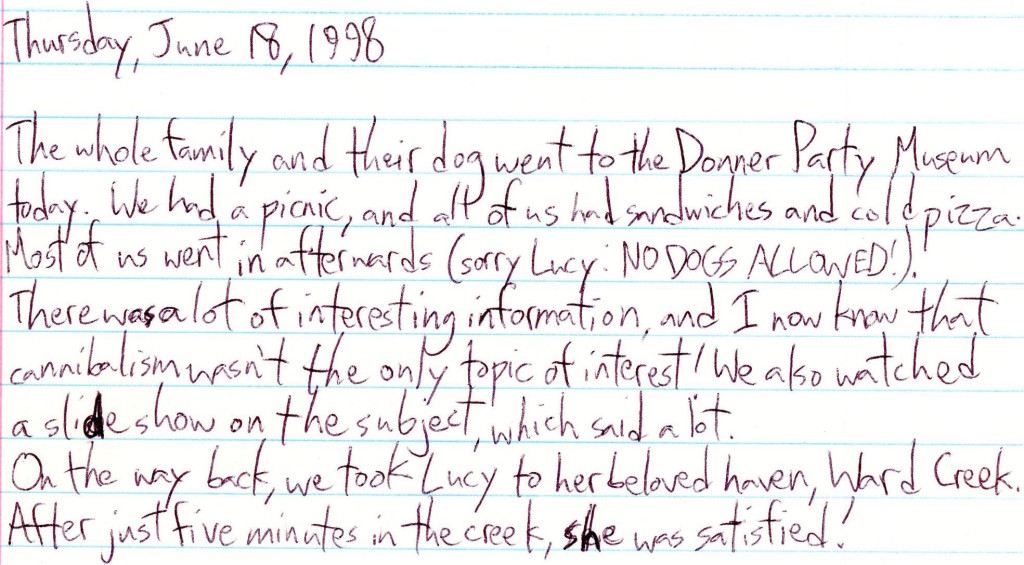 Thursday, June 18, 1998
The whole family and their dog went to the Donner Party Museum
today. We had a picnic, and all of us had sandwiches and cold pizza.
Most of us went in afterwards (sorry Lucy: NO DOGS ALLOWED!).
There was a lot of interesting information, and I now know that
cannibalism wasn't the only topic of interest! We also watched
a slide show on the subject, which said a lot.
On the way back, we took Lucy to her beloved haven, Ward Creek.
After just five minutes in the creek, she was satisfied!